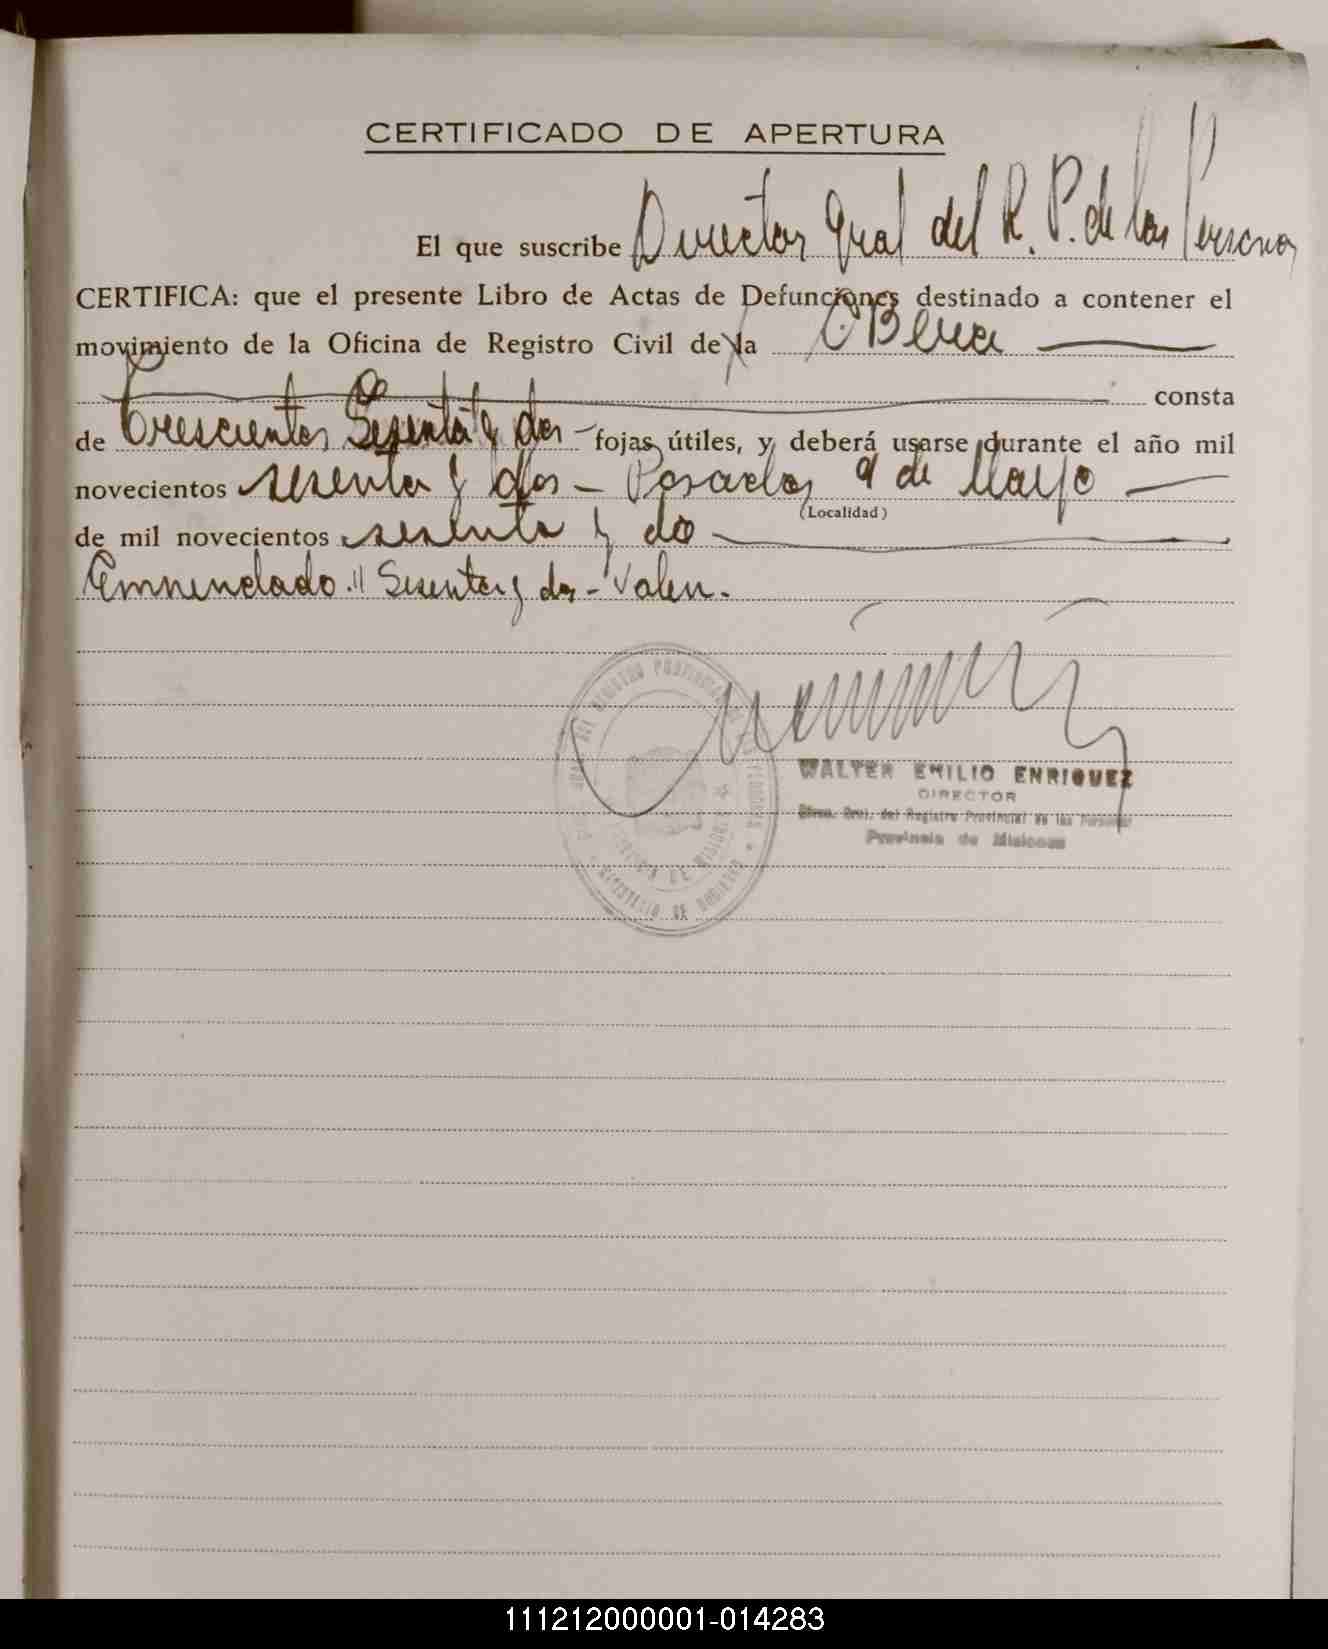 CERTIFICADO DE APERTURA
El que suscribe Director Gral del R. P. de las Personas
CERTIFICA: que el presente Libro de Actas de Defunciones destinado a contener el
movimiento de la Oficina de Registro Civil de la OBera
consta
de Trescientos Sesenta y dos - fojas útiles, y deberá usarse durante el año mil
novecientos sesenta y dos - Posadas 9 de Mayo
(Localidad)
de mil novecientos sesenta y do
Enmendado. // Sesenta y dos - Valen.
WALTER EMILIO ENRIQUEZ
DIRECTOR
Direc. Gral. del Registro Provincial de las Personas
Provincia de Misiones
111212000001-014283